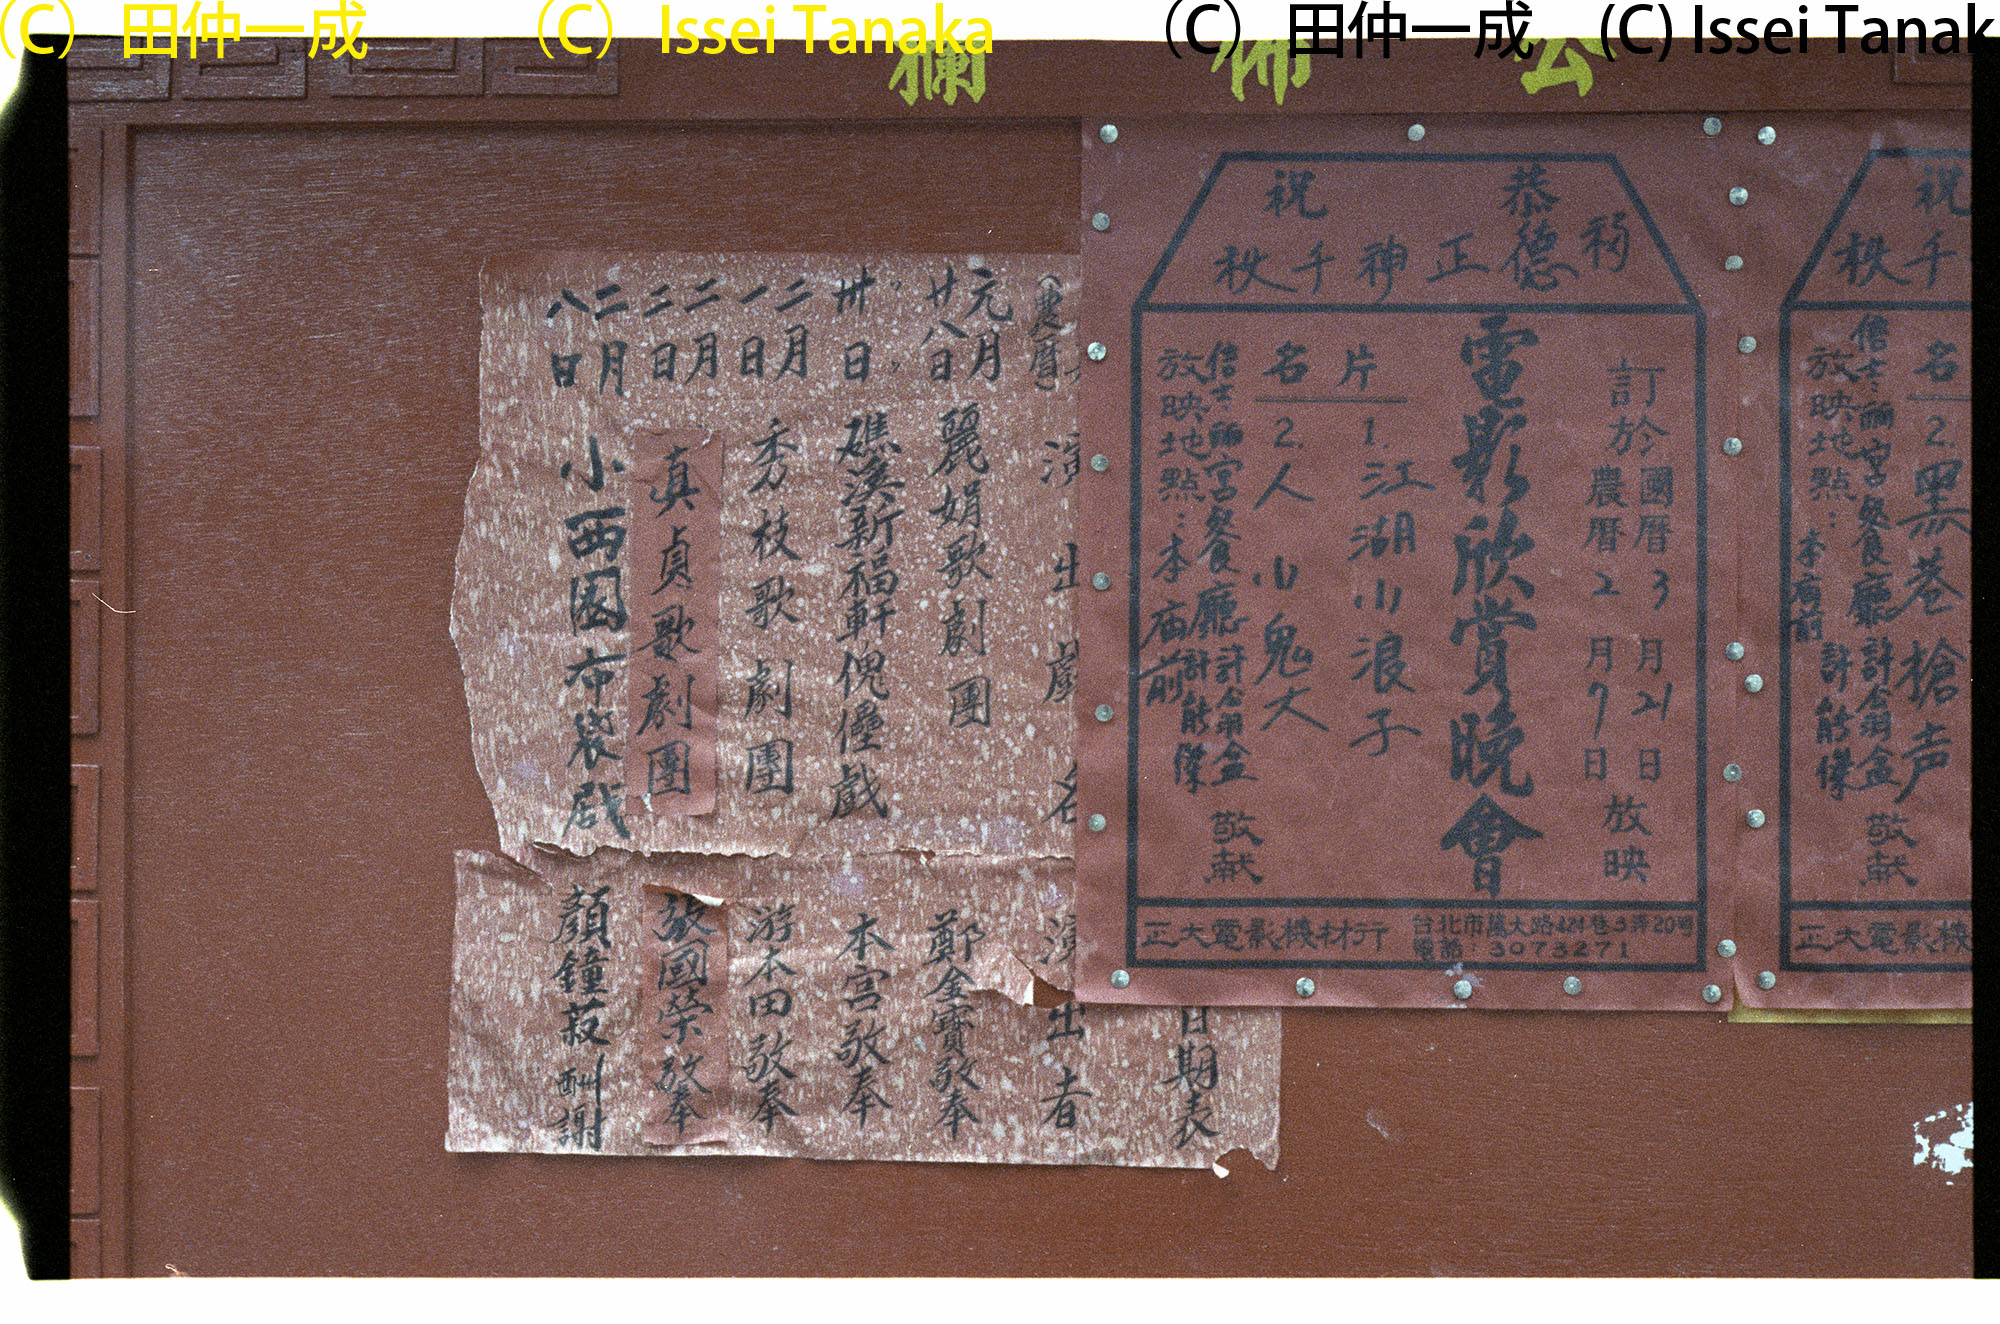 (C) 田仲一成
(C) Issei Tanaka
(C) 田仲一成
(C) Issei Tanak
公佈欄
恭祝
福德正神千秋
訂於國曆3月21日
農曆2月7日
放映
電影欣賞晚會
片名
1.江湖小浪子
2.人小鬼大
信士:
宮餐廳
敬献
放映地點:本庙前
正大電影機材行
台北市萬大路424巷3弄20号
電話:3073271
祝
千秋
名
2.黑巷槍声
信士:
宮餐廳
敬献
放映地點:本庙前
正大電影機
日期表
(農曆)
演出戲名
演出者
元月廿八日
麗娟歌劇團
鄭金寶敬奉
〃〃卅日
礁溪新福軒傀儡戲
本宮敬奉
二月一日
秀枝歌劇團
游木田敬奉
二月二日
真貞歌劇團
張國榮敬奉
二月八日
小西園布袋戲
顏鐘菽酬謝